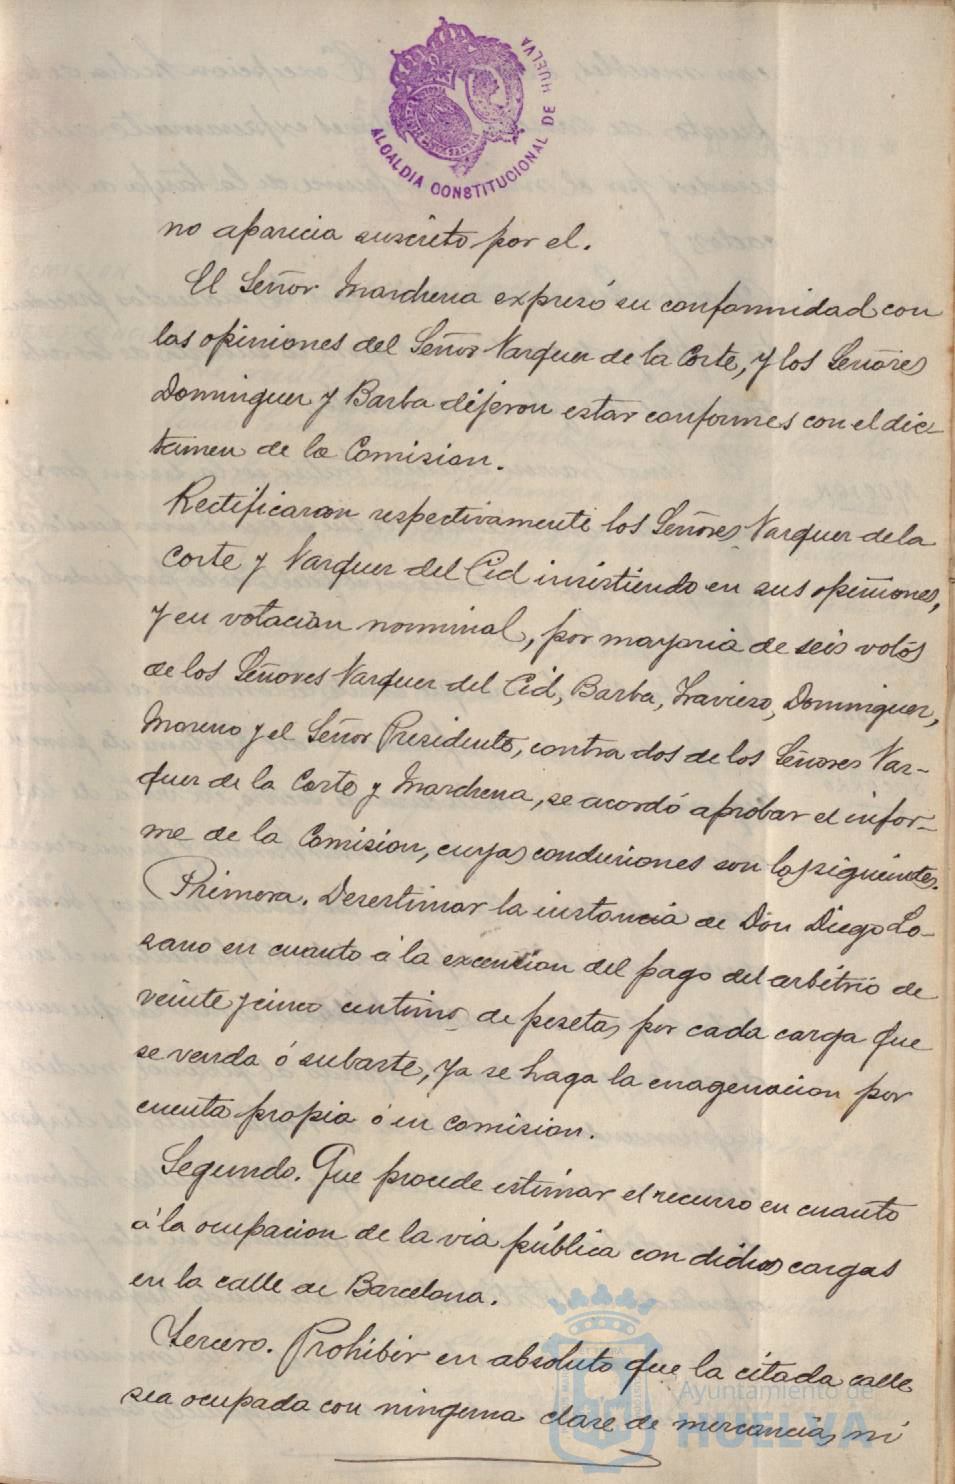 ALCALDIA CONSTITUCIONAL DE HUELVA
no aparicia suscrito por el.
El Señor Marchena expresó su conformidad con
las opiniones del Señor Vazquez de la Corte, y los Señores
Dominguez y Barba dijeron estar conformes con el dic-
tamen de la Comision.
Rectificaron respectivamente los Señores Vazquez de la
Corte y Vazquez del Cid insistiendo en sus opiniones,
y en votacion nominal, por mayoria de seis votos
de los Señores Vazquez del Cid, Barba, Travieso, Dominguez,
Moreno y el Señor Presidente, contra dos de los Señores Vaz-
quez de la Corte y Marchena, se acordó aprobar el infor-
me de la Comision, cuyas conclusiones son las siguientes.
Primera. Desestimar la instancia de Don Diego Lo-
zano en cuanto á la excencion del pago del arbitrio de
veinte y cinco centimos de pesetas por cada carga que
se venda ó subaste, ya se haga la enagenacion por
cuenta propia ó en comision.
Segundo. Que procede estimar el recurso en cuanto
á la ocupacion de la via pública con dichas cargas
en la calle de Barcelona.
Tercero. Prohibir en absoluto que la citada calle
sea ocupada con ninguna clase de mercancias, ni
Ayuntamiento de
HUELVA